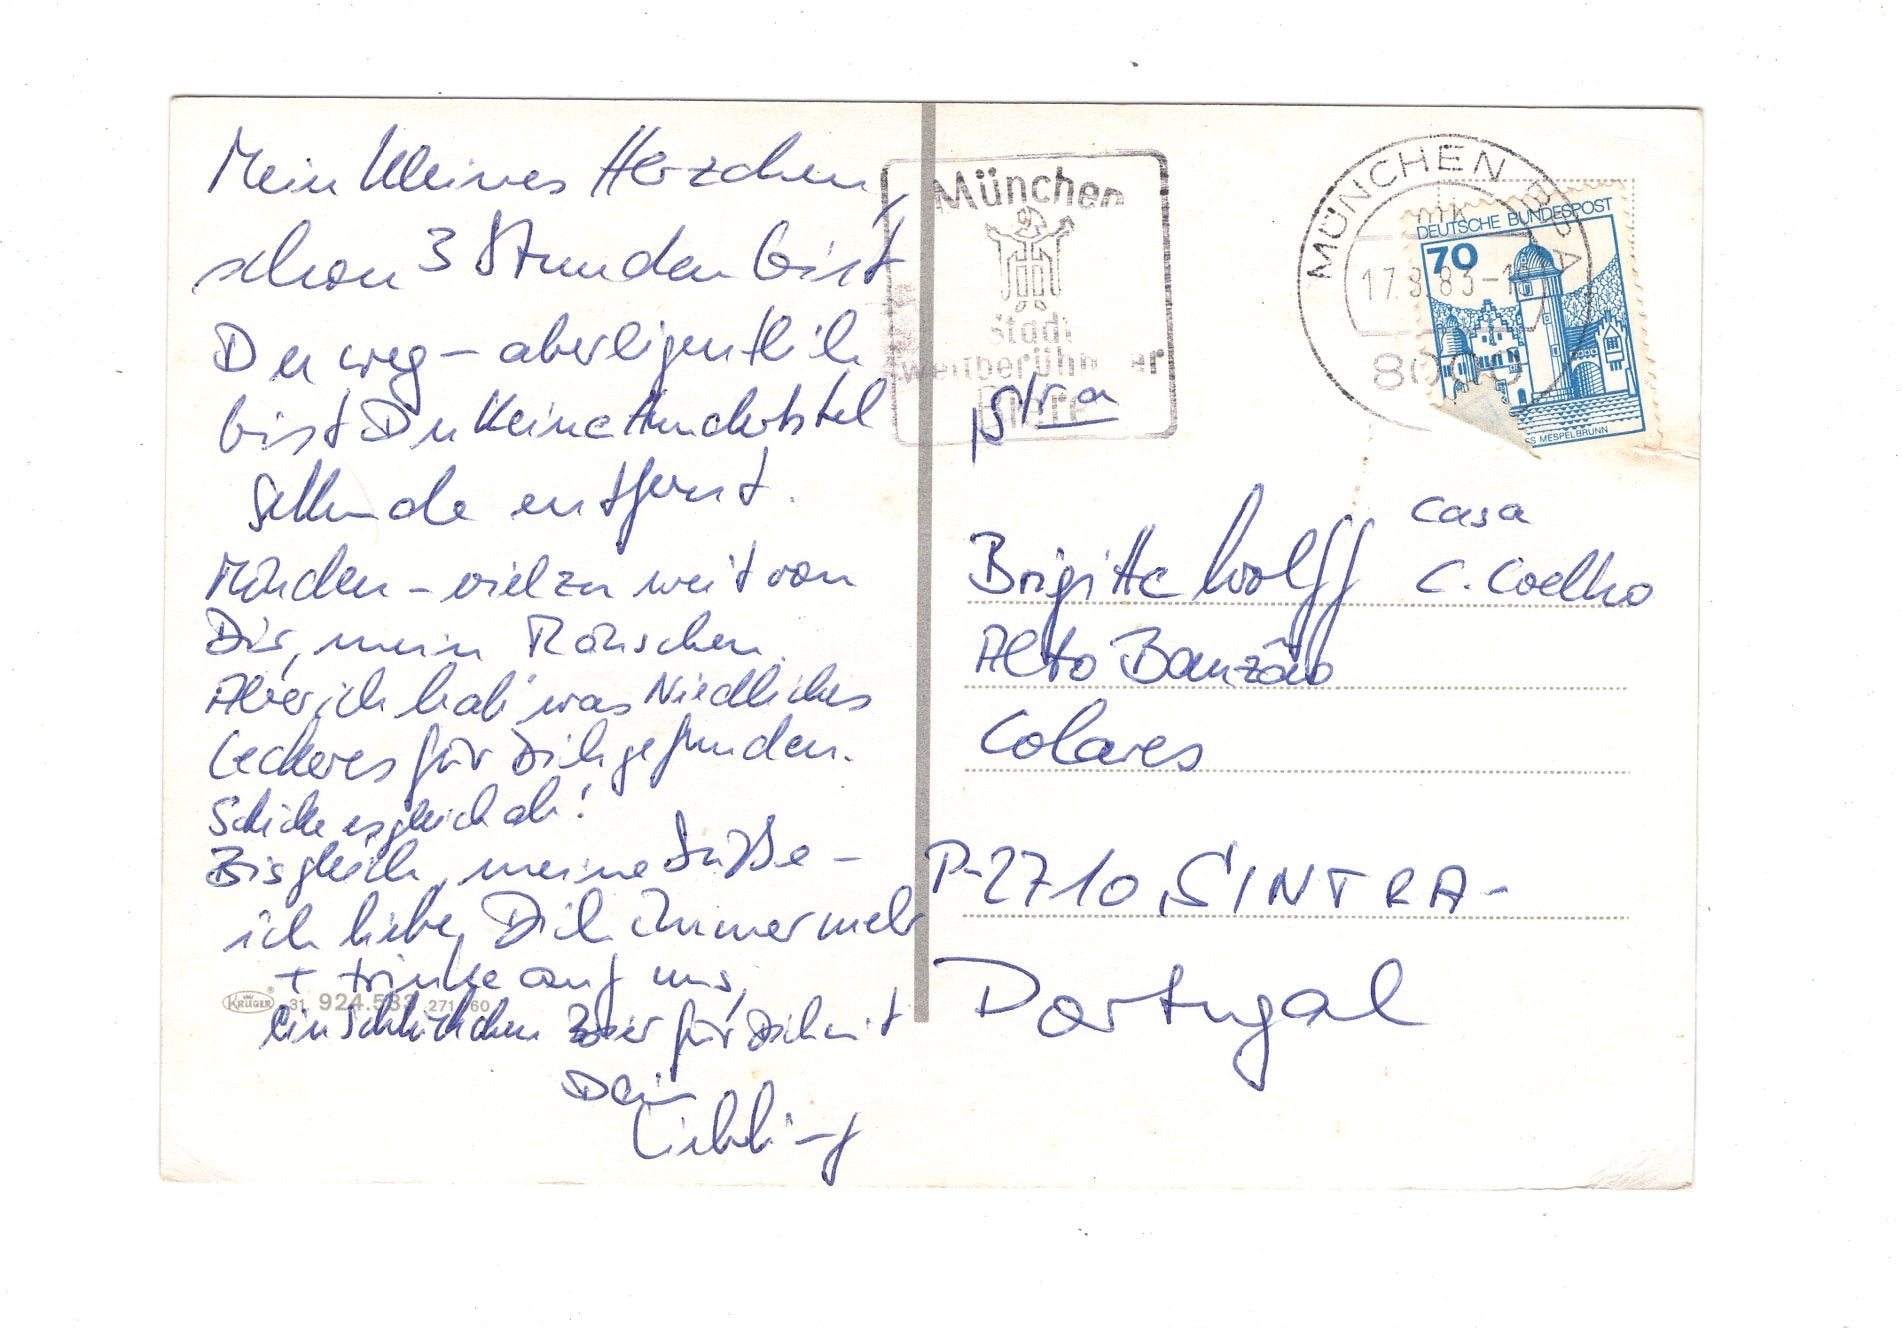 Mein kleines Herzchen,
schon 3 Stunden bist
Du weg – aber eigentlich
bist Du keine Hundertstel
Sekunde entfernt.
München – viel zu weit von
Dir, mein Mäuschen.
Aber ich hab' was Niedliches
Leckeres für Dich gefunden.
Schicke es gleich ab!
Bis gleich, meine Süße –
ich liebe Dich immer mehr
+ trinke auf uns,
ein Schlückchen Bier für Dich mit
Dein
Liebling
KRÜGER 31 924.533 271 60
München
Stadt
weltberühmter
Biere
MÜNCHEN
17.8.83-
8000
DEUTSCHE BUNDESPOST
70
SS MESPELBRUNN
Casa
Brigitte Wolff C. Coelho
Alto Banzão
Colares
P-2710 SINTRA-
Portugal